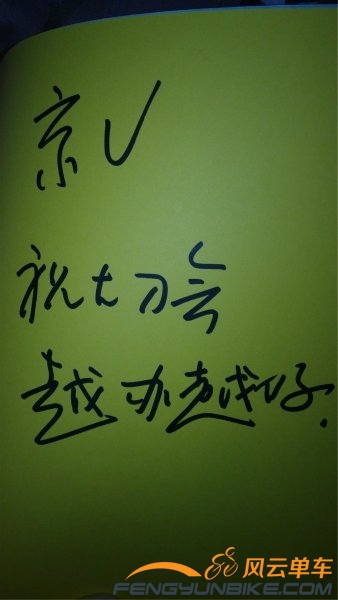 京V
祝大刀会
越办越好.
风云单车
FENGYUNBIKE.COM